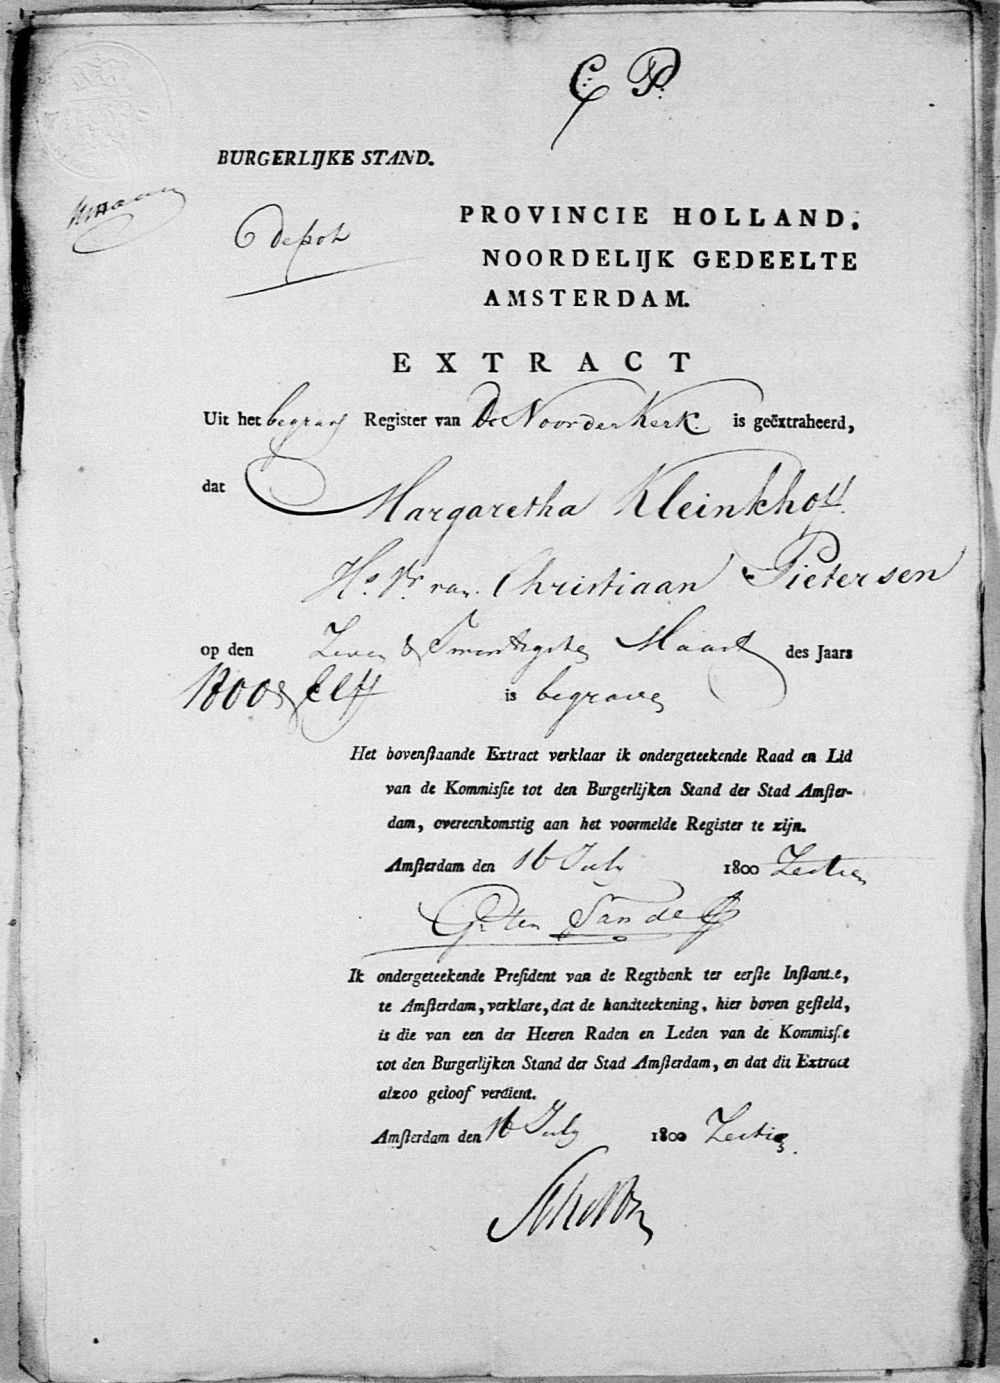 C: P:
BURGERLIJKE STAND.
depot
PROVINCIE HOLLAND,
NOORDELIJK GEDEELTE
AMSTERDAM.
EXTRACT
Uit het begraaf Register van De Noorder Kerk. is geëxtraheerd,
dat Margaretha Kleinkhoff
Hs. Vr. van Christiaan Pietersen
op den Zeven & Twintigste Maart des Jaars
1800 & Elff is begraven
Het bovenſtaande Extract verklaar ik ondergeteekende Raad en Lid
van de Kommisſie tot den Burgerlijken Stand der Stad Amſter-
dam, overeenkomstig aan het voormelde Register te zijn.
Amſterdam den 16 July 1800 Zestien
ten Sande
Ik ondergeteekende Preſident van de Regtbank ter eerſte Inſtantie,
te Amſterdam, verklare, dat de handteekening, hier boven geſteld,
is die van een der Heeren Raden en Leden van de Kommisſie
tot den Burgerlijken Stand der Stad Amſterdam, en dat dit Extract
alzoo geloof verdient.
Amſterdam den 16 July 1800 Zestien